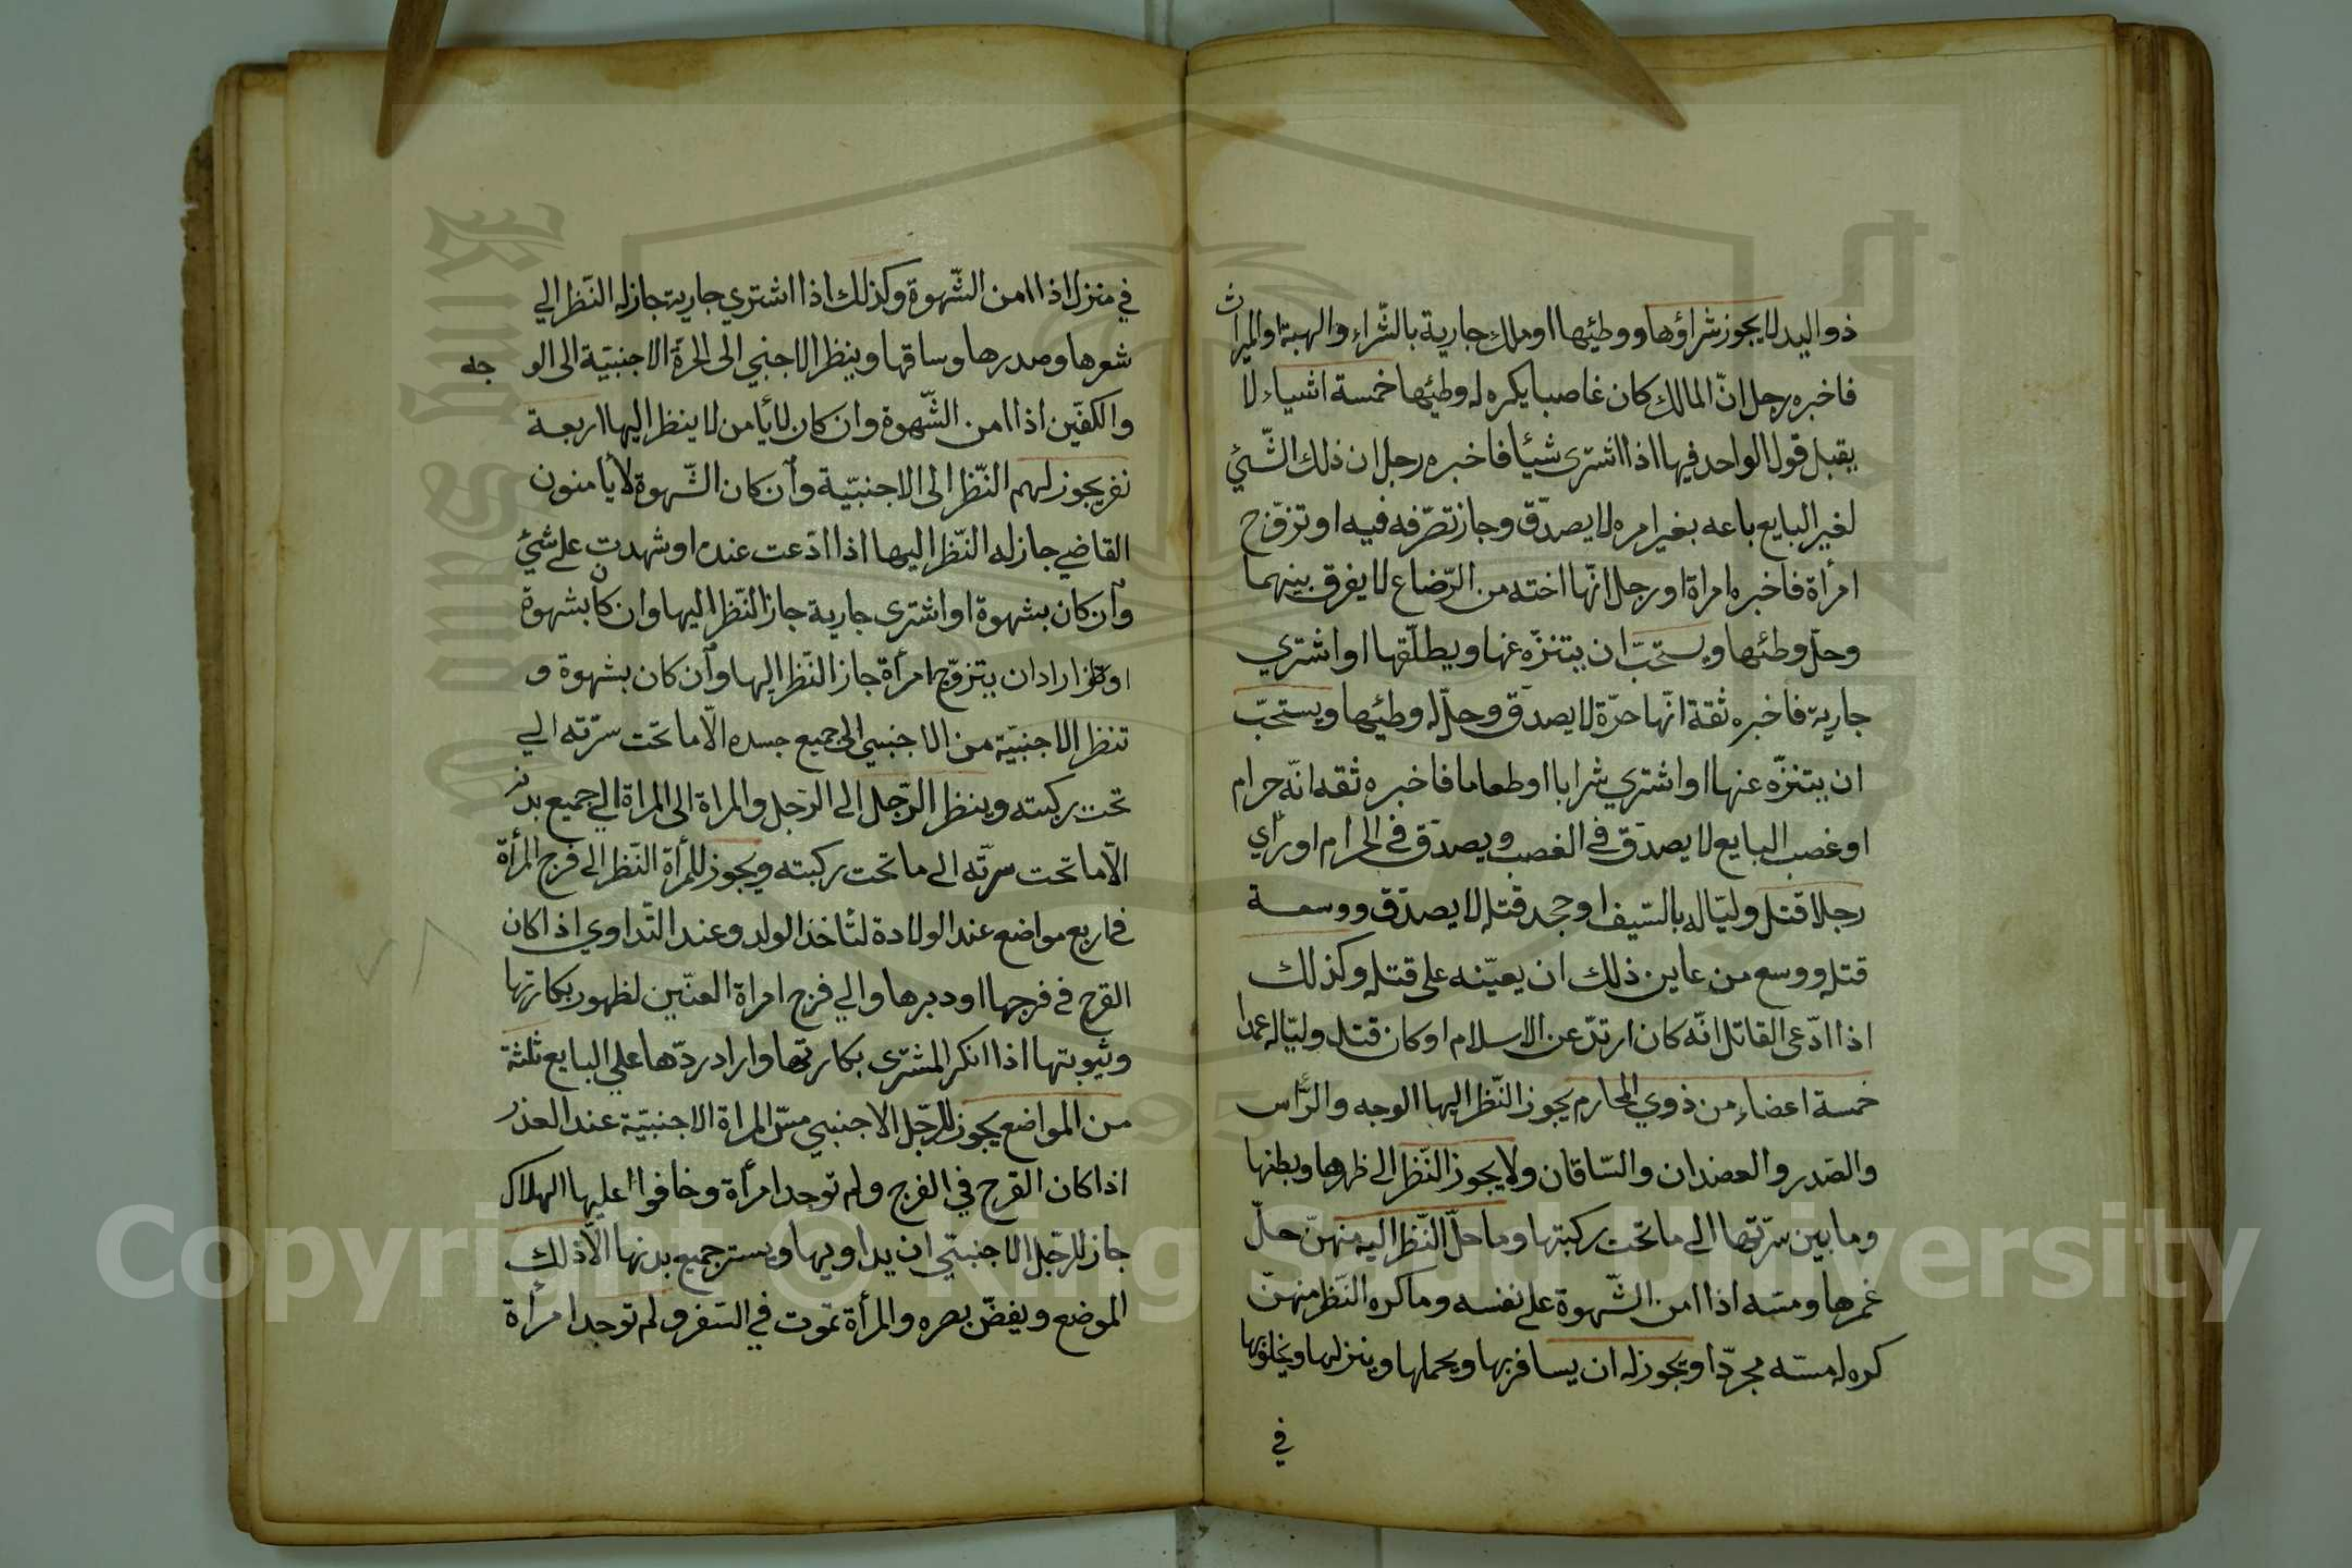 ذو اليد لا يجوز شراؤها ووطيئها او ملك جارية بالشّراء والهبة او الميراث
فاخبره رجل انّ المالك كان غاصبا يكره له وطيئها خمسة اشياء لا
يقبل قول الواحد فيها اذا اشترى شيئا فاخبره رجل ان ذلك الشّيئ
لغير البايع باعه بغير امره لا يصدّق وجاز تصرّفه فيه او تزوّج
امرأة فاخبره امراة او رجل انّها اخته من الرّضاع لا يفرق بينهما
وحلّ وطئها ويستحبّ ان يتنزّه عنها ويطلّقها او اشتري
جارية فاخبره ثقة انّها حرّة لا يصدّق وحلّ له وطيئها ويستحبّ
ان يتنزّه عنها او اشتري شرابا او طعاما فاخبره ثقه انّه حرام
او غصب البايع لا يصدّق في الغصب ويصدّق في الحرام او رأي
رجلا قتل وليّا له بالسّيف او جحد قتله لا يصدّق ووسعة
قتله ووسع من عاين ذلك ان يعيّنه على قتله وكذلك
اذا ادّعى القاتل انّه كان ارتدّ عن الاسلام او كان قتل وليّا له عمدا
خمسة اعضاء من ذوي المحارم يجوز النّظر اليها الوجه والرّأس
والصّدر والعضدان والسّاقان ولا يجوز النّظر الى ظهرها وبطنها
وما بين سرّتها الى ما تحت ركبتها وما حلّ النّظر اليه منهنّ حلّ
غمزها ومسّه اذا امن الشّهوة على نفسه وما كره النّظر منهنّ
كره له مسّه مجرّدا ويجوز له ان يسافر بها ويحملها وينزلها ويخلو بها
في
في منزل اذا امن الشّهوة وكذلك اذا اشتري جارية جاز له النّظر الي
شعرها وصدرها وساقها وينظر الاجنبي الى الحرّة الاجنبيّة الى الو جه
والكفّين اذا امن الشّهوة وان كان لا يأمن لا ينظر اليها اربعة
نفر يجوز لهم النّظر الى الاجنبيّة وان كان الشّهوة لا يأمنون
القاضي جاز له النّظر اليها اذا ادّعت عنده او شهدت على شيئ
وان كان بشهوة او اشترى جارية جاز النّظر اليها وان كان بشهوة
او اراد ان يتزوّج امرأة جاز النّظر اليها وان كان بشهوة و
تنظر الاجنبيّة من الاجنبي الى جميع جسده الّا ما تحت سرّته الي
تحت ركبته وينظر الرّجل الى الرّجل والمراة الى المراة الي جميع بدنه
الّا ما تحت سرّته الى ما تحت ركبته ويجوز للمرأة النّظر الى فرج المرأة
في اربع مواضع عند الولادة لتأخذ الولد وعند التّداوي اذا كان
القرح في فرجها او دبرها والي فرج امراة العنّين لظهور بكارتها
وثيوبتها اذا انكر المشترى بكارتها واراد ردّها علي البايع ثلثة
من المواضع يجوز للرّجل الاجنبي مسّ المراة الاجنبيّة عند العذر
اذا كان القرح في الفرج ولم توجد امرأة وخافوا عليها الهلاك
جاز للرّجل الاجنبيّ ان يداويها ويستر جميع بدنها الّا ذلك
الموضع ويغضّ بصره والمرأة تموت في السّفر ولم توجد امرأة
Copyright © King Saud University